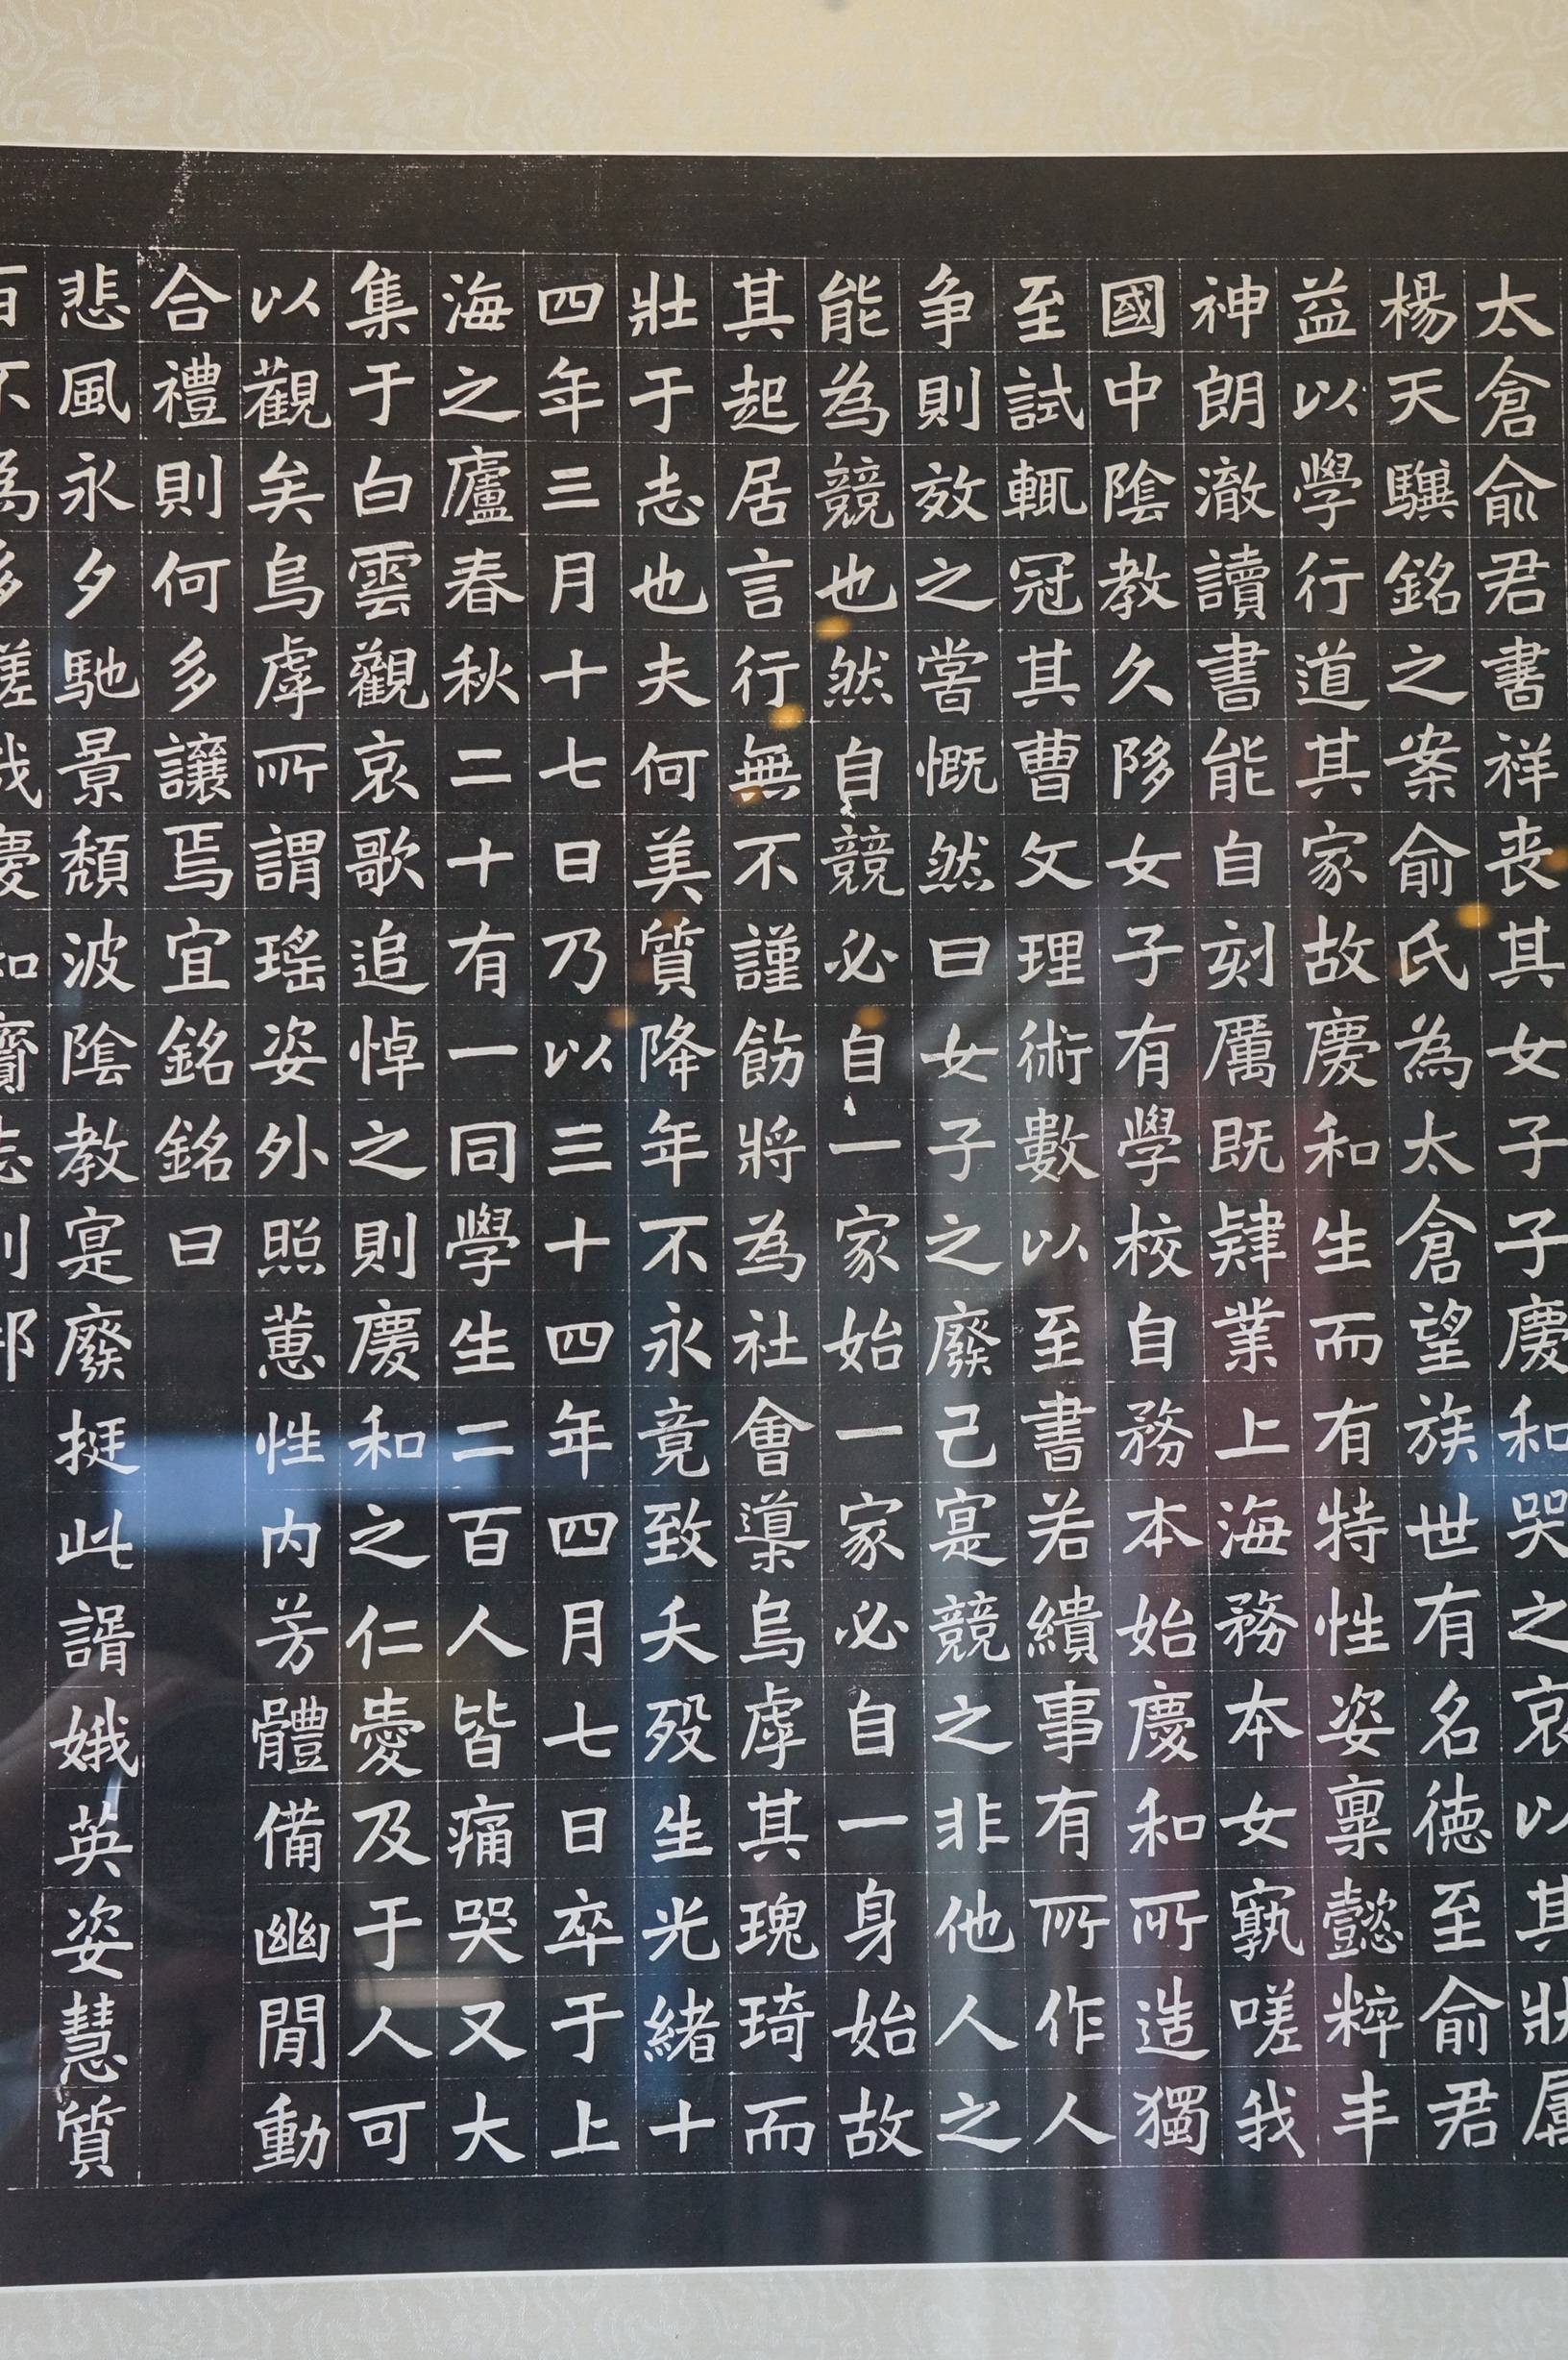 太倉俞君書祥丧其女子子慶和哭之哀以其狀屬
楊天驥銘之案俞氏為太倉望族世有名德至俞君
益以學行道其家故慶和生而有特性姿稟懿粹丰
神朗澈讀書能自刻厲既肄業上海務本女孰嗟我
國中陰教久陊女子有學校自務本始慶和所造獨
至試輒冠其曹文理術數以至書若繢事有所作人
争則效之嘗慨然曰女子之廢己寔競之非他人之
能為競也然自競必自一家始一家必自一身始故
其起居言行無不謹飭將為社會導烏虖其瑰琦而
壯于志也夫何美質降年不永竟致夭殁生光緒十
四年三月十七日乃以三十四年四月七日卒于上
海之廬春秋二十有一同學生二百人皆痛哭又大
集于白雲觀哀歌追悼之則慶和之仁愛及于人可
以觀矣烏虖所謂瑤姿外照蕙性内芳體備幽閒動
合禮則何多讓焉宜銘銘曰
悲風永夕馳景頹波陰教寔廢挺此諝娥英姿慧質